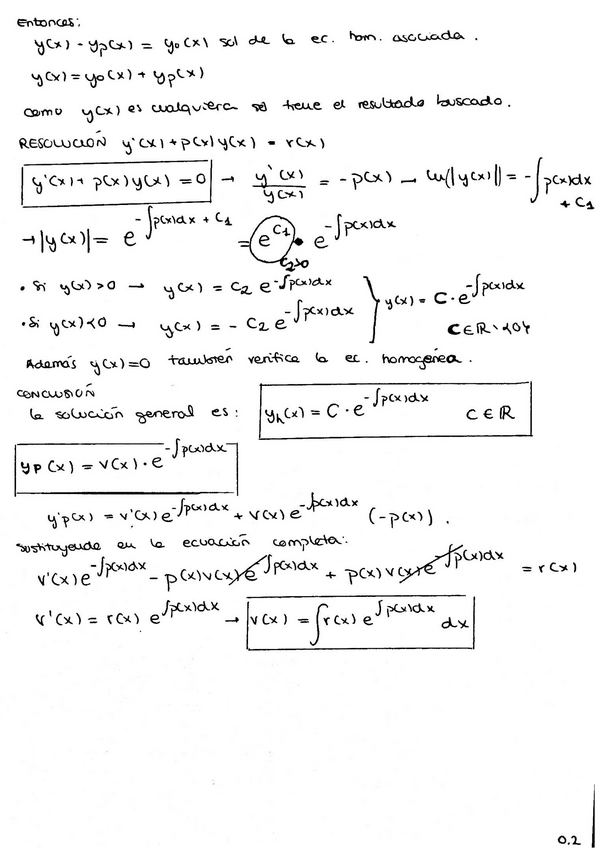 Entonces:
y(x) - yp(x) = y₀(x) sol de la ec. hom. asociada.
y(x) = y₀(x) + yp(x)
como y(x) es cualquiera se tiene el resultado buscado.
RESOLUCIÓN y'(x) + p(x)y(x) = r(x)
y'(x) + p(x)y(x) = 0 → y'(x)/y(x) = -p(x) → ln(|y(x)|) = -∫p(x)dx + C₁
→ |y(x)| = e^(-∫p(x)dx + C₁) = e^(C₁) · e^(-∫p(x)dx)
C₂>0
• Si y(x)>0 → y(x) = C₂ e^(-∫p(x)dx)
• Si y(x)<0 → y(x) = -C₂ e^(-∫p(x)dx)
} y(x) = C · e^(-∫p(x)dx)
C∈ℝ∖{0}
Además y(x)=0 también verifica la ec. homogénea.
CONCLUSIÓN
la solución general es: yₕ(x) = C · e^(-∫p(x)dx) C∈ℝ
yp(x) = v(x) · e^(-∫p(x)dx)
y'p(x) = v'(x)e^(-∫p(x)dx) + v(x)e^(-∫p(x)dx) (-p(x)).
Sustituyendo en la ecuación completa:
v'(x)e^(-∫p(x)dx) - p(x)v(x)e^(-∫p(x)dx) + p(x)v(x)e^(-∫p(x)dx) = r(x)
v'(x) = r(x) e^(∫p(x)dx) → v(x) = ∫r(x) e^(∫p(x)dx) dx
0.2